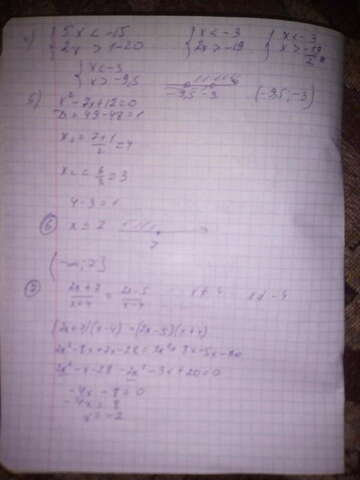 { 5x < -15   { x < -3   { x < -3
2x > 1-20   2x > -19   x > -19/2
{ x < -3
x > -9,5   -9,5 -3   (-9,5; -3)
5) x² - 7x + 12 = 0
D = 49 - 48 = 1
x₁ = (7+1)/2 = 4
= 3
4 - 3 = 1
⑥ x ≤ 7
7
(-∞; 7]
⑦ (2x+7)/(x+4) = (2x-5)/(x-4)   x ≠ 4   x ≠ -4
(2x+7)(x-4) = (2x-5)(x+4)
2x² - 8x + 7x - 28 = 2x² + 8x - 5x - 20
2x² - x - 28 - 2x² - 3x + 20 = 0
-4x - 8 = 0
-4x = 8
x = -2